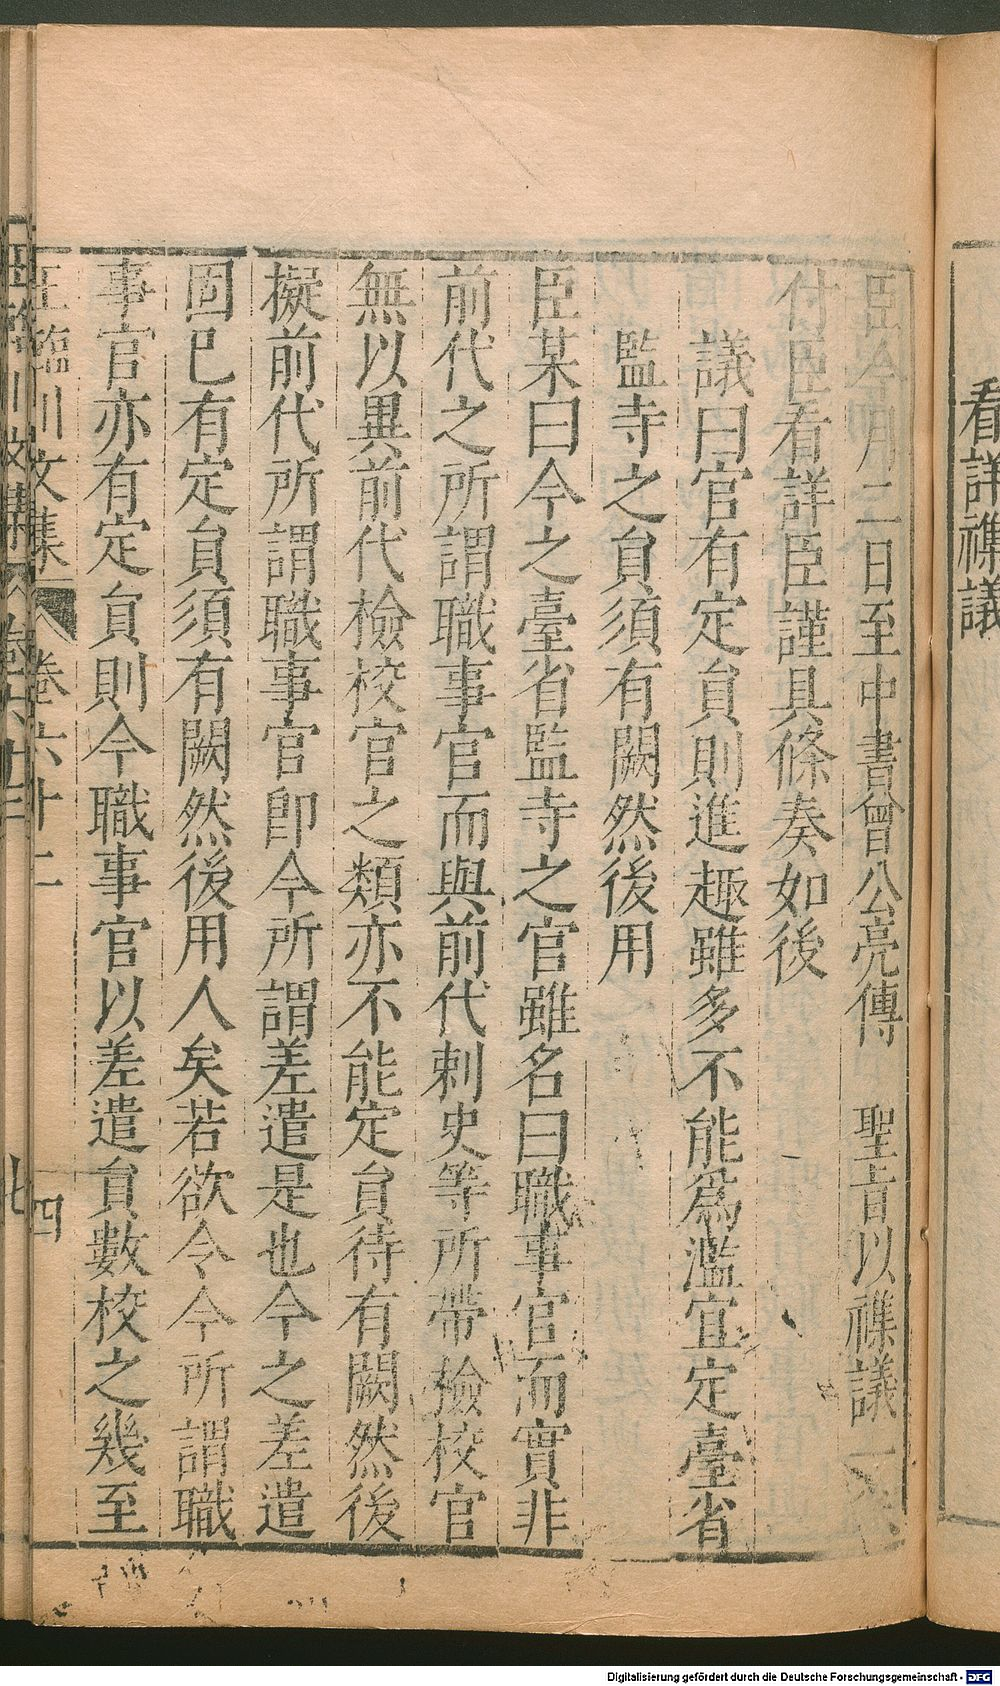 看詳襍議
臣今月二日至中書曾公亮傳　聖旨以襍議一
付臣看詳臣謹具條奏如後
議曰官有定貟則進趣雖多不能爲濫宜定臺省
監寺之貟須有闕然後用
臣某曰今之臺省監寺之官雖名曰職事官而實非
前代之所謂職事官而與前代刺史等所帶檢校官
無以異前代檢校官之類亦不能定貟待有闕然後
擬前代所謂職事官卽今所謂差遣是也今之差遣
固已有定貟須有闕然後用人矣若欲令今所謂職
事官亦有定貟則今職事官以差遣貟數校之幾至
王臨川文集　卷六十二　四
Digitalisierung gefördert durch die Deutsche Forschungsgemeinschaft - DFG